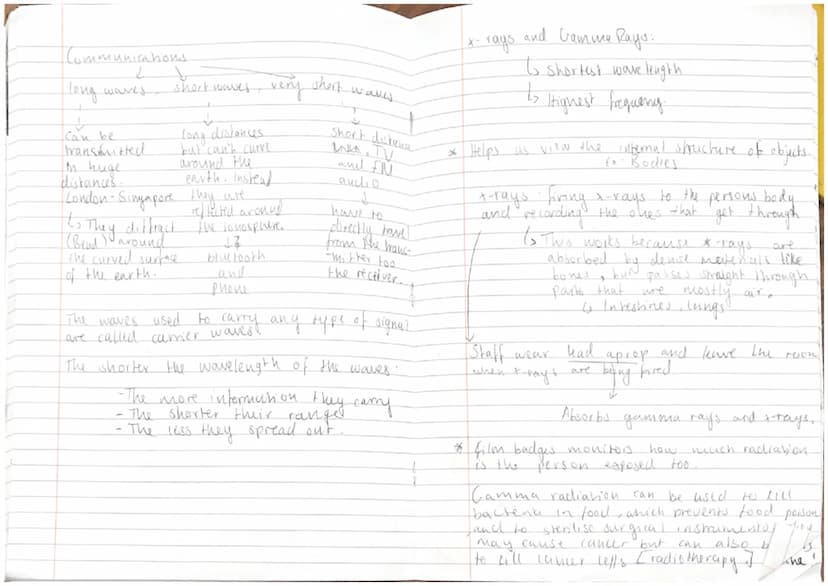 Communications
long waves, short waves, very short waves
can be
transmitted
in huge
distances.
London-Singapore
↳ They difract
(Bend) around
the curved surface
of the earth.
long distances
but can't curve
around the
earth. Instead
they are
reflected around
the ionosphere.
bluetooth
and
phone
short distance
TV
and FM
audio
have to
directly travel
from the trans-
-mitter too
the receiver.
The waves used to carry any type of signal
are called carrier waves.
The shorter the wavelength of the waves:
- The more information they carry
- The shorter their range
- The less they spread out.
x-rays and Gamma Rays:
↳ Shortest wavelength
↳ Highest frequency
* Helps us view the internal structure of objects
Bodies
x-rays: firing x-rays to the persons body
and recording the ones that get through
↳ This works because x-rays are
absorbed by dense materials like
bones, but passes straight through
parts that are mostly air.
↳ Intestines, lungs
Staff wear lead aprop and leave the room
when x-rays are being fired.
Absorbs gamma rays and x-rays.
* film badges monitors how much radiation
is the person exposed too.
Gamma radiation can be used to kill
bacteria in food, which prevents food poison
and to sterilise surgical instruments
may cause cancer but can also
to kill cancer cells [radiotherapy.]